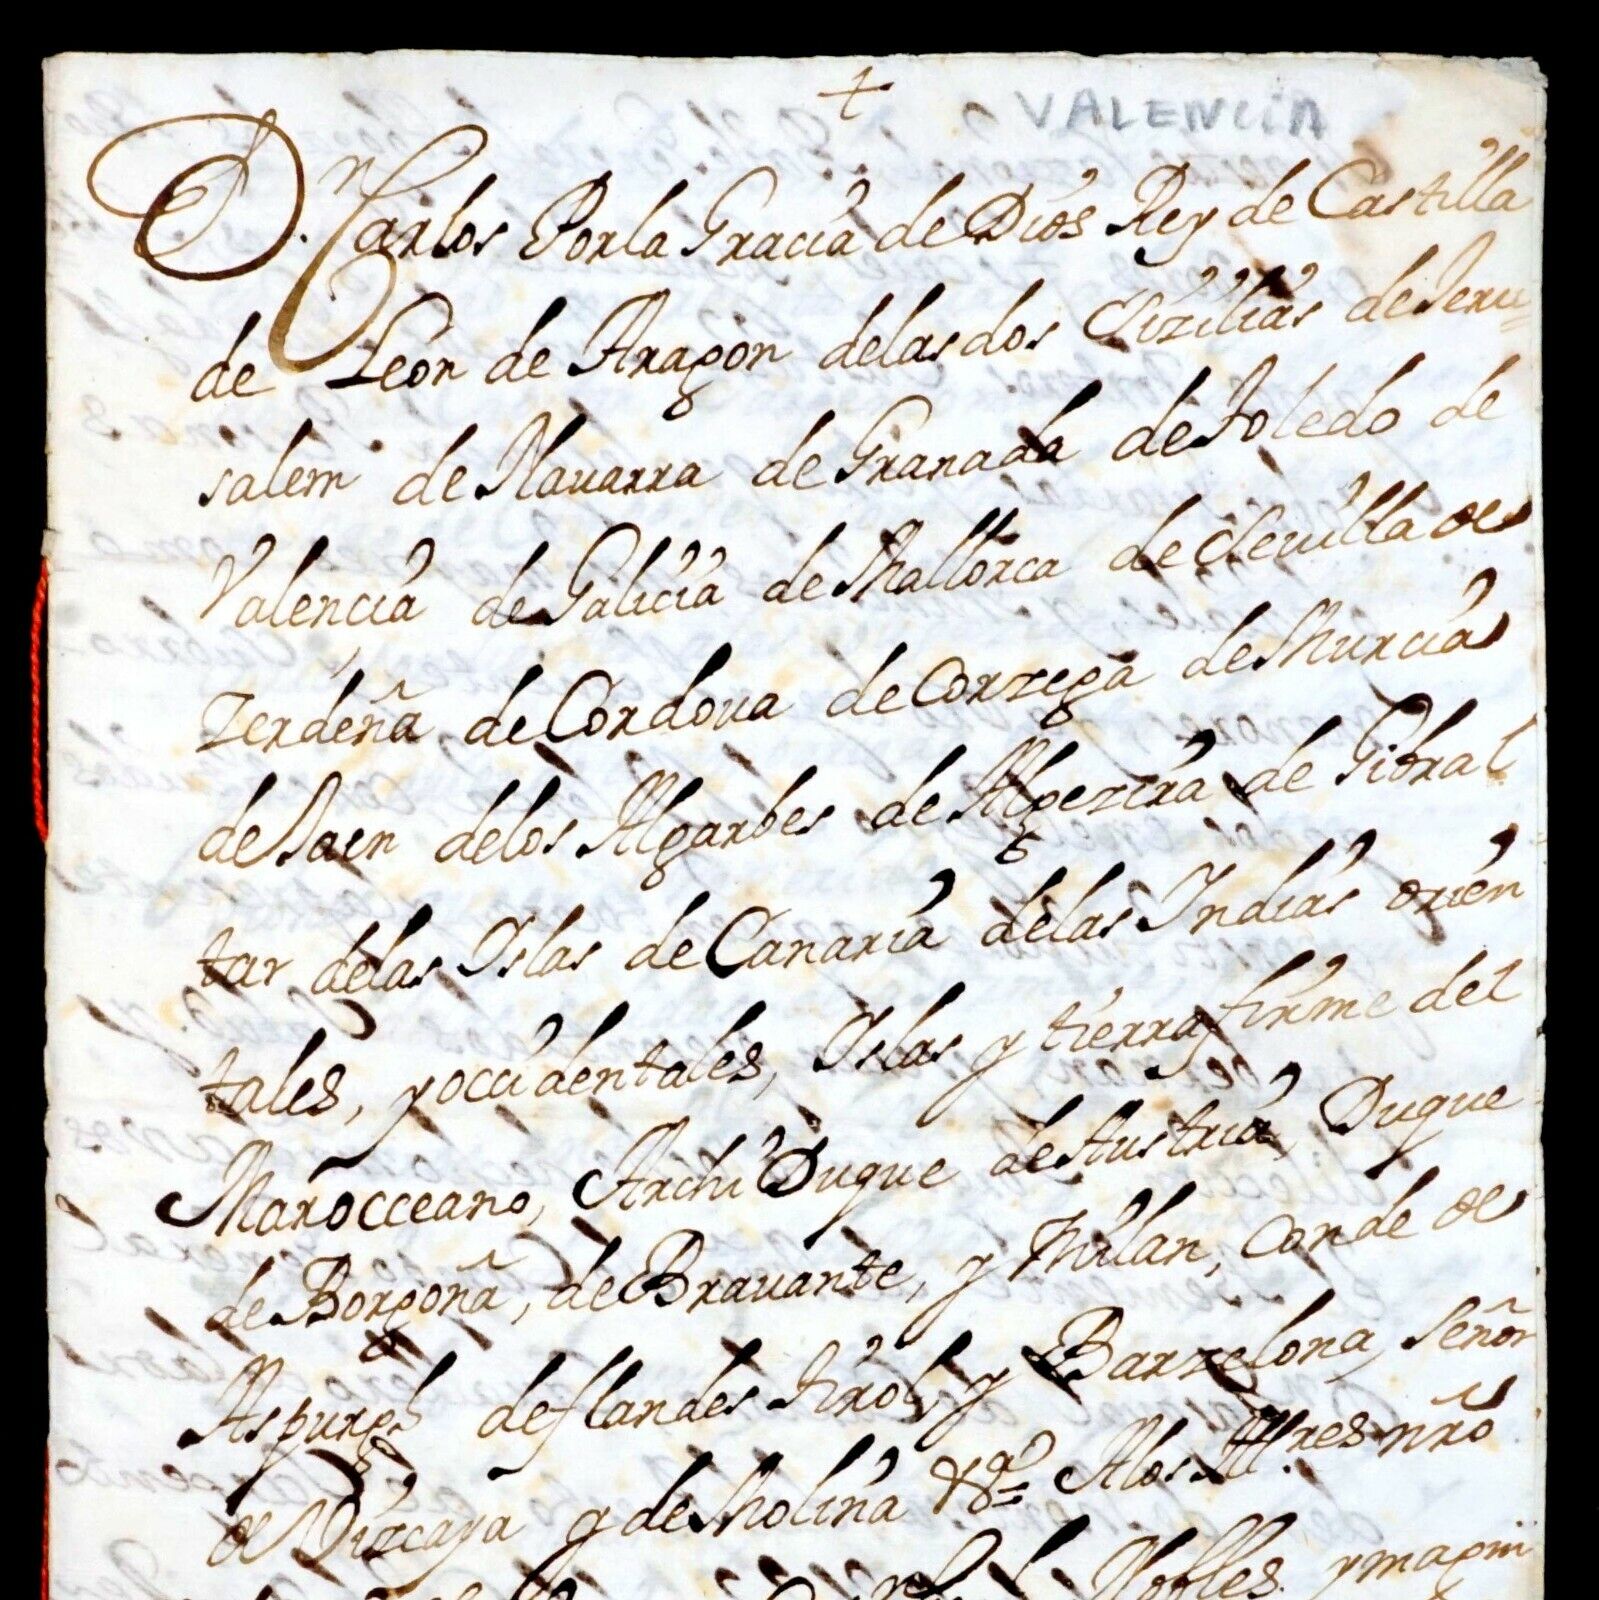 +
VALENCIA
D.n Carlos Por la Gracia de Dios Rey de Castilla
de Leon de Aragon delas dos Cizilias de Jeru=
salem de Nauarra de Granada de Toledo de
Valencia de Galicia de Mallorca de Seuilla de
Zerdeña de Cordoua de Corzega de Murcia
de Jaen delos Algarbes de Algezira de Gibral
tar delas Islas de Canaria delas Indias orien
tales, y occidentales, Islas y tierra firme del
Marocceano, Archi Duque de Austria, Duque
de Borgoña, de Brauante, y Milan, Conde de
Aspurg de flandes tirol, y Barzelona, Señor
de Vizcaya y de Molina &a= Alos Ill.res nrõ
Nobles y magni